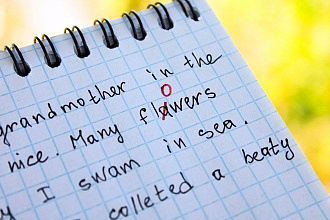 grandmother in the
nice. Many flowers
I swam in sea.
colleted a beaty